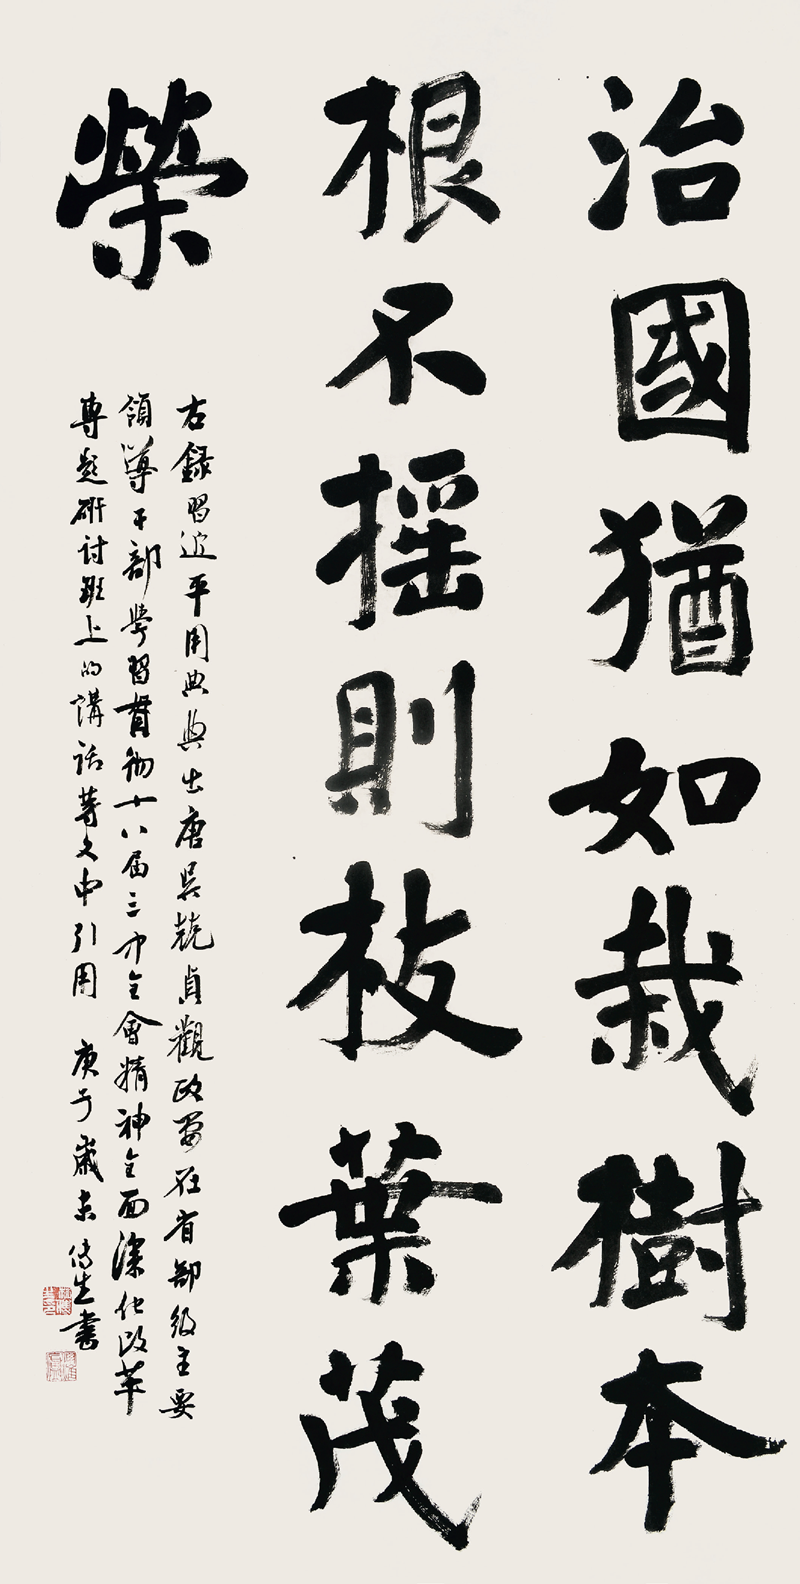 治國猶如栽樹本
根不摇則枝葉茂
榮
右録習近平用典典出唐吴兢貞觀政要在省部级主要
領導干部學習貫彻十八届三中全會精神全面深化改革
專题研讨班上的講话等文中引用 庚子歲末傳生書